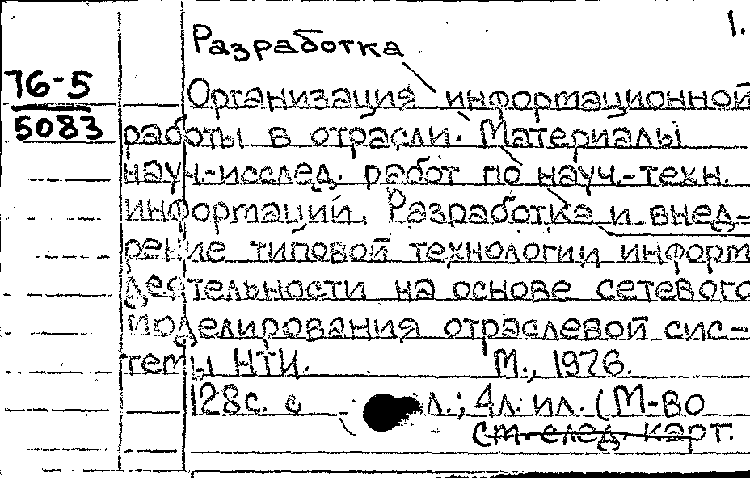 1.
Разработка
76-5
5083
Организация информационной
работы в отрасли. Материалы
науч.-исслед. работ по науч.-техн.
информации. Разработка и внед-
рение типовой технологии информ
деятельности на основе сетевого
моделирования отраслевой сис-
темы НТИ. М., 1976.
128с. с л.; 4л. ил. (М-во
см. след. карт.